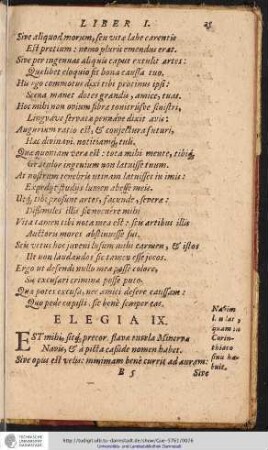 LIBER I. 25
Sive aliquod morum, seu vitæ labe carentis
Est pretium: nemo pluris emendus erat.
Sive per ingenuas aliquis caput extulit artes:
Quælibet eloquio fit bona caussa tuo.
Hic ergo commotus dixi tibi protinus ipsi:
Scena manet dotes grandis, amice, tuas.
Hoc mihi non ovium fibræ tonitrusve sinistri,
Linguave servatæ pennave dixit avis:
Augurium ratio est, & conjectura futuri,
Hac divinavi, notitiamq; tuli.
Quæ quoniam vera est: tota mihi mente, tibiq;
Gratulor ingenium non latuisse tuum.
At nostrum tenebris utinam latuisset in imis:
Expediit studijs lumen abesse meis.
Utq; tibi prosunt artes, facunde, severæ:
Dissimiles illis sic nocuere mihi.
Vita tamen tibi nota mea est: scis artibus illis
Auctoris mores abstinuisse sui.
Scis vetus hoc juveni lusum mihi carmen, & istos
Ut non laudandos sic tamen esse jocos.
Ergo ut defendi nullo mea posse colore,
Sic excusari crimina posse puto.
Qua potes excusa, nec amici desere caussam:
Quo pede cœpisti, sic benè semper eas.
ELEGIA IX.
EST mihi, sitq; precor, flavæ tutela Minervæ
Navis, & à picta casside nomen habet.
Sive opus est velis: minimam benè currit ad auram:
B 5 Sive
quam in
Corin-
thiaco
sinu ha-
buit.
http://tudigit.ulb.tu-darmstadt.de/show/Gue-5761/0026
Universitäts- und Landesbibliothek Darmstadt
TECHNISCHE
UNIVERSITÄT
DARMSTADT